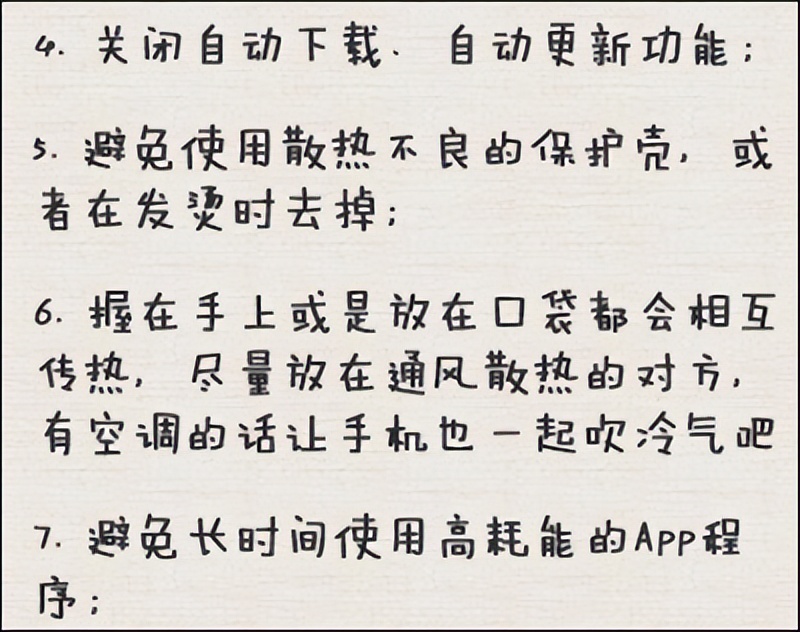 4. 关闭自动下载. 自动更新功能;
5. 避免使用散热不良的保护壳, 或
者在发烫时去掉;
6. 握在手上或是放在口袋都会相互
传热, 尽量放在通风散热的对方,
有空调的话让手机也一起吹冷气吧
7. 避免长时间使用高耗能的APP程
序;